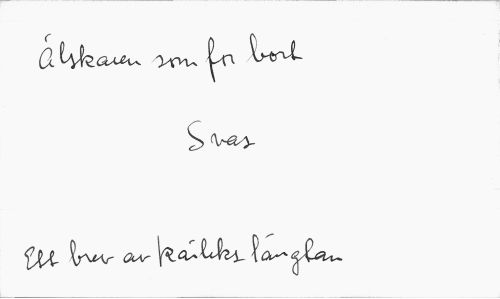 Älskaren som for bort
Svar
Ett brev av kärleks längtan